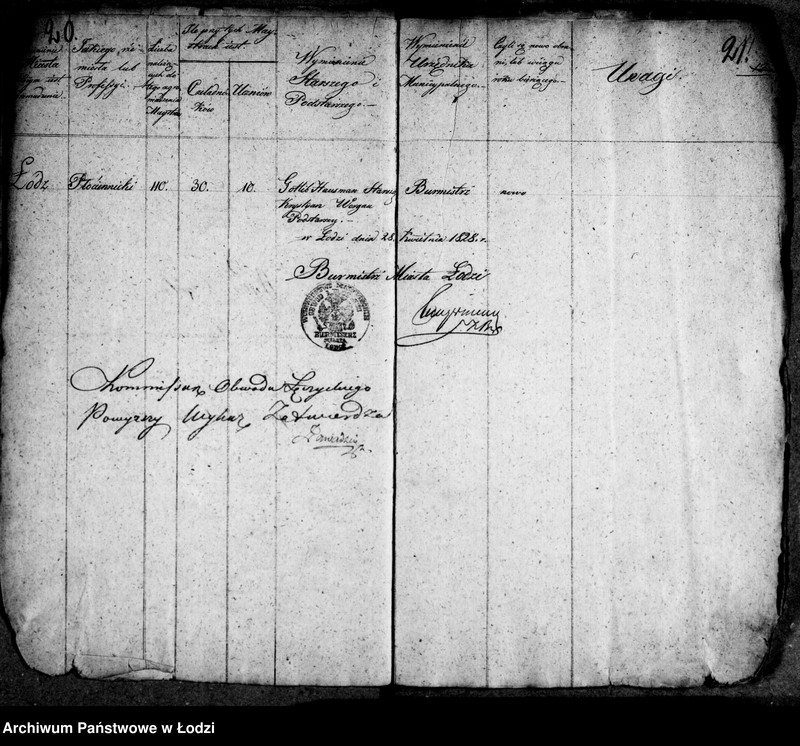 20.
21.
Jakiego rze-
miosła lub
Professyi.
Ile przy tych May-
strach jest.
Czeladni-
ków
Uczniów
Wymienienie
Starszego i
Podstarszego.
Wymienienie
Urzędnika
Municypalnego.
Czyli są nowo obra-
ni, lub w ciągu
roku bieżącego.
Uwagi.
Łodz
Płóciennicki
110.
30.
10.
Gotlib Hausman Starszy
Krystyan
Podstarszy.
Burmistrz
nowo
w Łodzi dnia 28. Kwietnia 1828. r.
Burmistrz Miasta Łodzi
BURMISTRZ
MIASTA
ŁODZI
Kommissarz Obwodu Łęczyckiego
Powyższy Wykaz Zatwierdza
Archiwum Państwowe w Łodzi